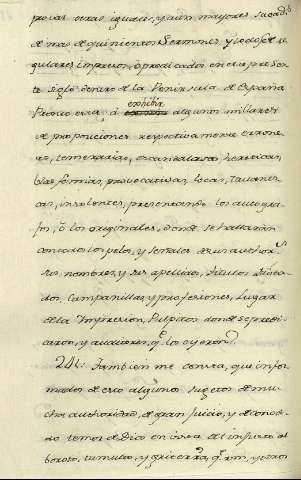 provar otras iguales, y aun mayores sacad.s
de mas de quinientos Sermones, y todos
gulares impresos, ò predicados en este presen
te siglo dentro de la Peninsula de España
exhibir
algunos millares
de proposiciones respectivamente errone
as, temerarias, escandalosas, hereticas,
blasfemias, provocativas, locas, truanes
cas, insolentes, presentando los autogra
fos, ò los originales, donde se hallaràn
contados los pelos, y señales de sus autores
sus nombres, y sus apellidos, titulos
dos, campanillas, y profesiones, Lugar
de la Impresion, Pulpitos donde se predi
caron, y auditores, q.e los oyeron.
241: Tambien me consta, que infor
mados de esto algunos sugetos de mu
cha authoridad, de gran juicio, y de cono
do temor de Dios en vista del
boroto, tumulto, y griteria, q.e